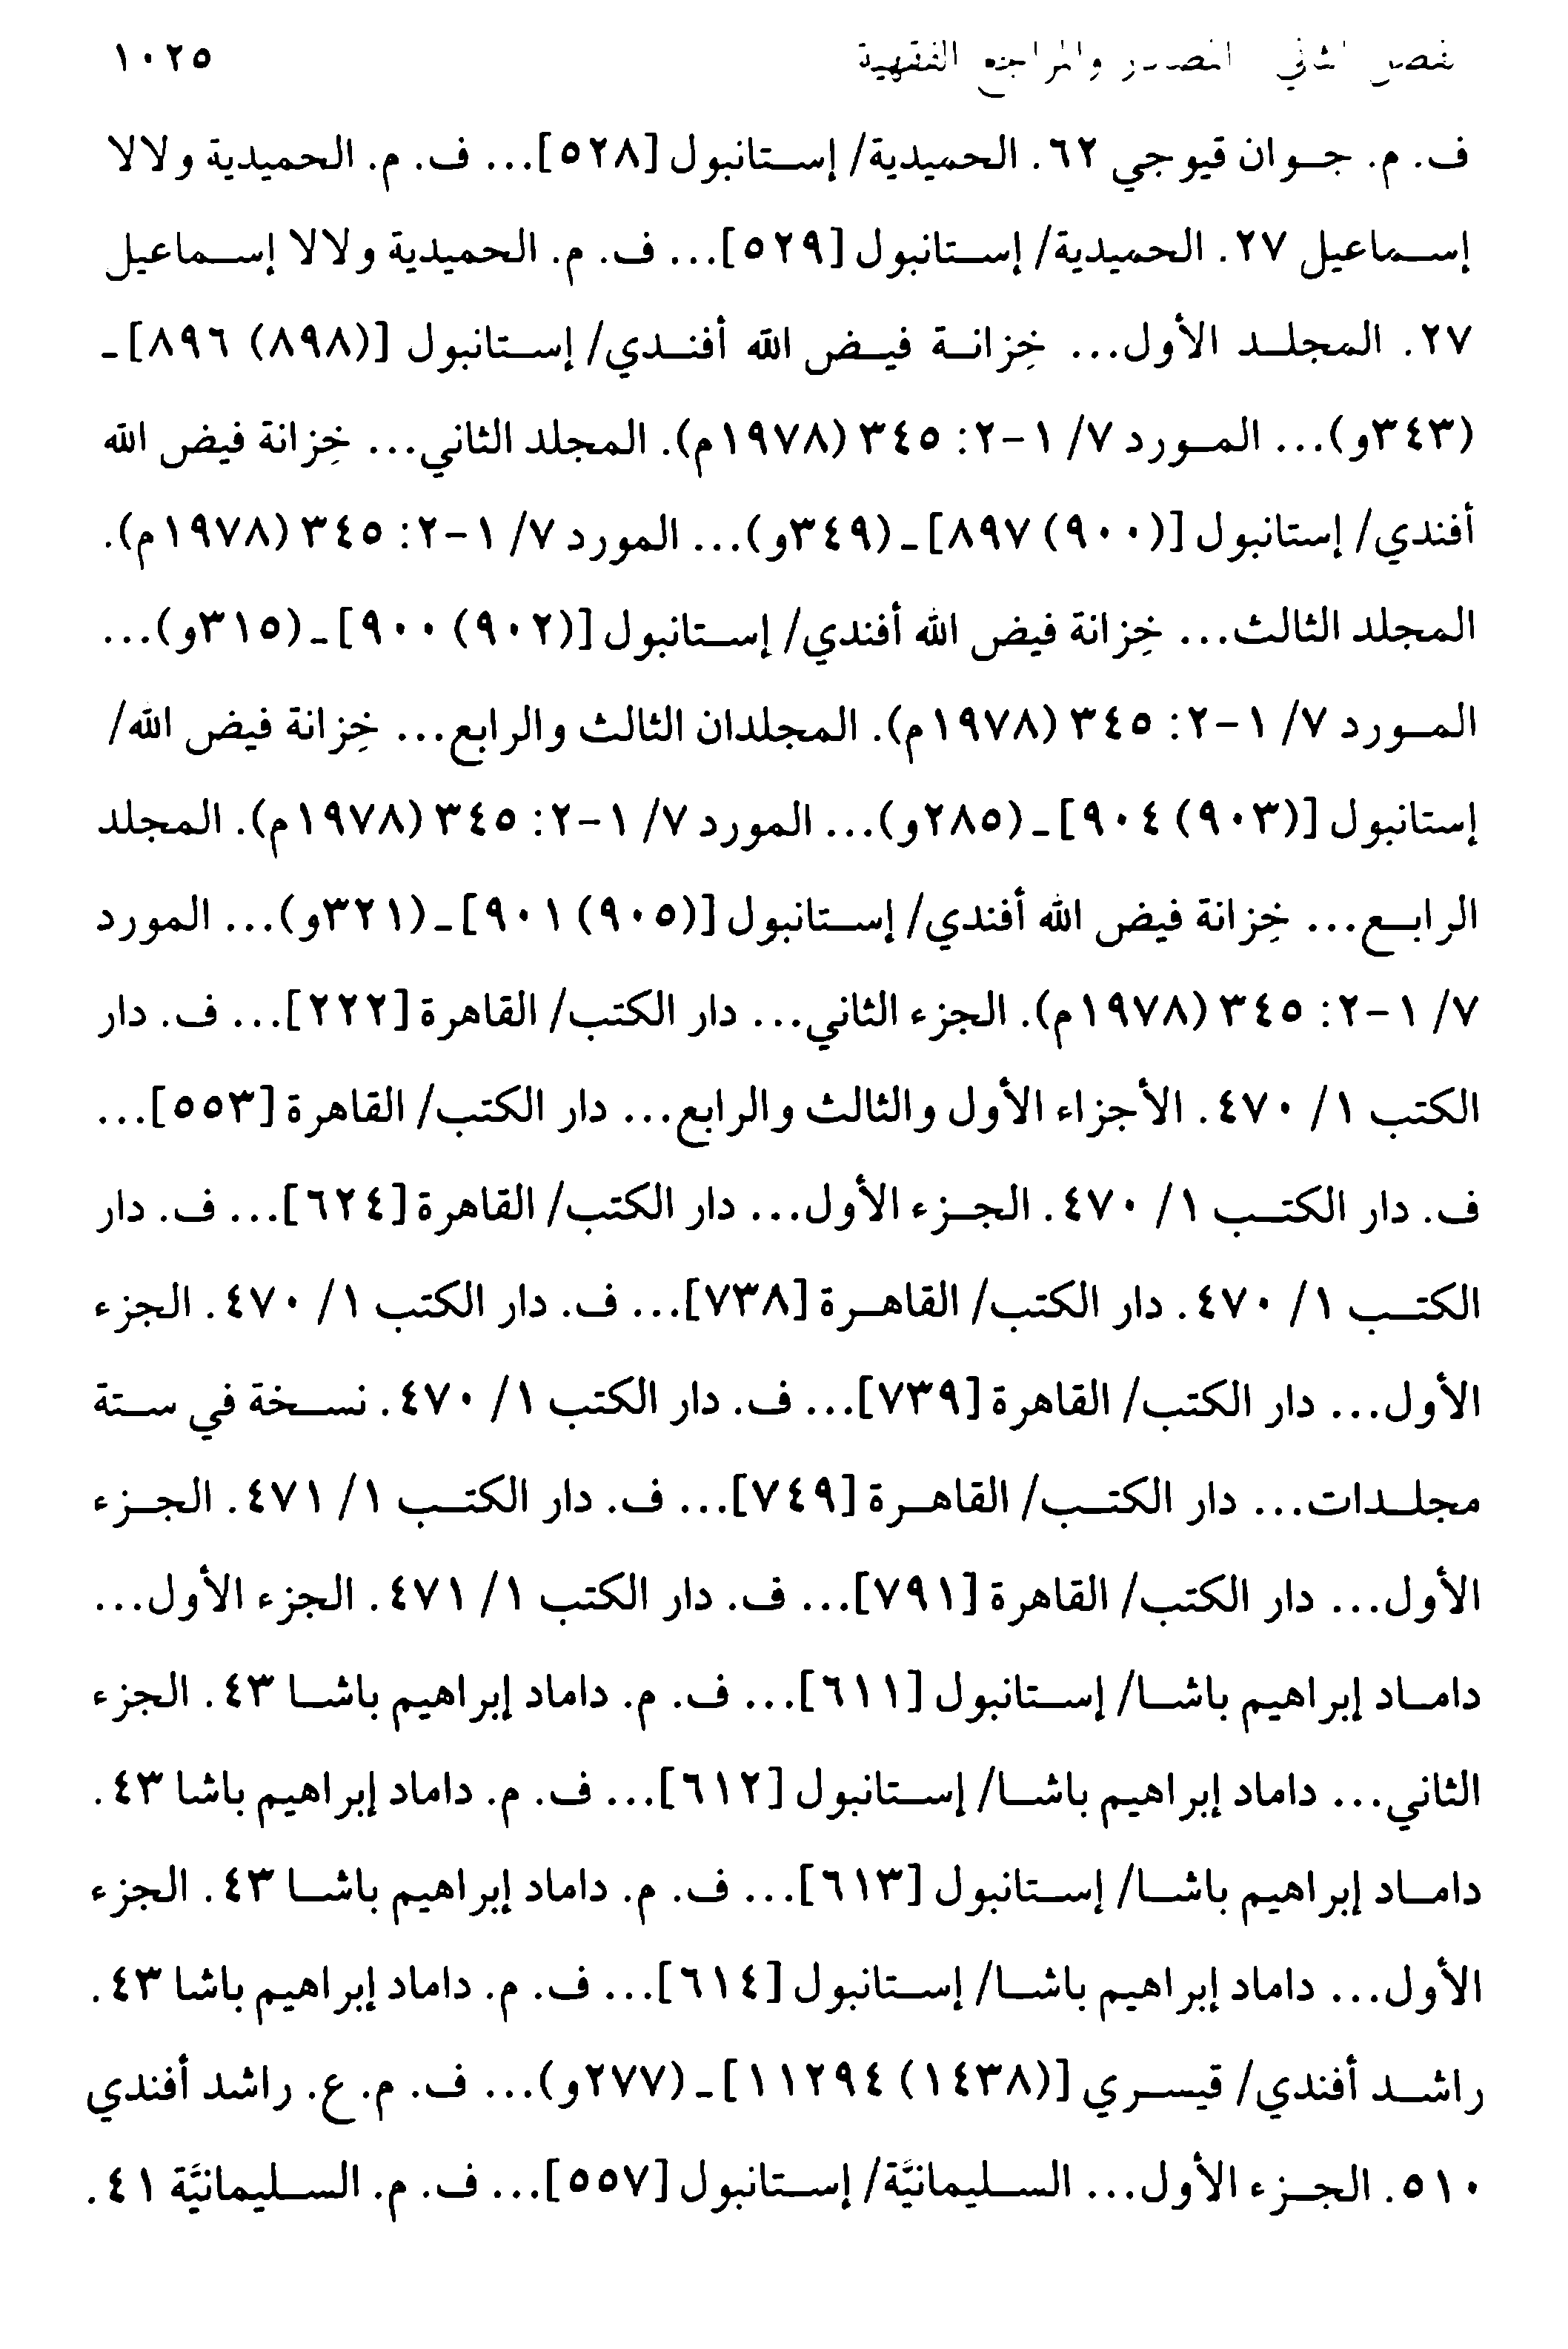 الفصل الثاني المصادر والمراجع الفقهية ١٠٢٥
ف. م. جـوان قيوجي ٦٢. الحميدية/ إستانبول [٥٢٨]... ف. م. الحميدية ولالا
إسماعيل ٢٧. الحميدية/ إستانبول [٥٢٩]... ف. م. الحميدية ولالا إسماعيل
٢٧. المجلد الأول... خِزانة فيض الله أفندي/ إستانبول [(٨٩٨) ٨٩٦] ـ
(٣٤٣و)... المورد ٧/ ١-٢: ٣٤٥ (١٩٧٨م). المجلد الثاني... خِزانة فيض الله
أفندي/ إستانبول [(٩٠٠) ٨٩٧] ـ (٣٤٩و)... المورد ٧/ ١-٢: ٣٤٥ (١٩٧٨م).
المجلد الثالث... خِزانة فيض الله أفندي/ إستانبول [(٩٠٢) ٩٠٠] ـ (٣١٥و)...
المورد ٧/ ١-٢: ٣٤٥ (١٩٧٨م). المجلدان الثالث والرابع... خِزانة فيض الله/
إستانبول [(٩٠٣) ٩٠٤] ـ (٢٨٥و)... المورد ٧/ ١-٢: ٣٤٥ (١٩٧٨م). المجلد
الرابع... خِزانة فيض الله أفندي/ إستانبول [(٩٠٥) ٩٠١] ـ (٣٢١و)... المورد
٧/ ١-٢: ٣٤٥ (١٩٧٨م). الجزء الثاني... دار الكتب/ القاهرة [٢٢٢]... ف. دار
الكتب ١/ ٤٧٠. الأجزاء الأول والثالث والرابع... دار الكتب/ القاهرة [٥٥٣]...
ف. دار الكتب ١/ ٤٧٠. الجزء الأول... دار الكتب/ القاهرة [٦٢٤]... ف. دار
الكتب ١/ ٤٧٠. دار الكتب/ القاهرة [٧٣٨]... ف. دار الكتب ١/ ٤٧٠. الجزء
الأول... دار الكتب/ القاهرة [٧٣٩]... ف. دار الكتب ١/ ٤٧٠. نسخة في ستة
مجلدات... دار الكتب/ القاهرة [٧٤٩]... ف. دار الكتب ١/ ٤٧١. الجزء
الأول... دار الكتب/ القاهرة [٧٩١]... ف. دار الكتب ١/ ٤٧١. الجزء الأول...
داماد إبراهيم باشا/ إستانبول [٦١١]... ف. م. داماد إبراهيم باشا ٤٣. الجزء
الثاني... داماد إبراهيم باشا/ إستانبول [٦١٢]... ف. م. داماد إبراهيم باشا ٤٣.
داماد إبراهيم باشا/ إستانبول [٦١٣]... ف. م. داماد إبراهيم باشا ٤٣. الجزء
الأول... داماد إبراهيم باشا/ إستانبول [٦١٤]... ف. م. داماد إبراهيم باشا ٤٣.
راشد أفندي/ قيسري [(١٤٣٨) ١١٢٩٤] ـ (٢٧٧و)... ف. م. ع. راشد أفندي
٥١٠. الجزء الأول... السليمانيَّة/ إستانبول [٥٥٧]... ف. م. السليمانيَّة ٤١.